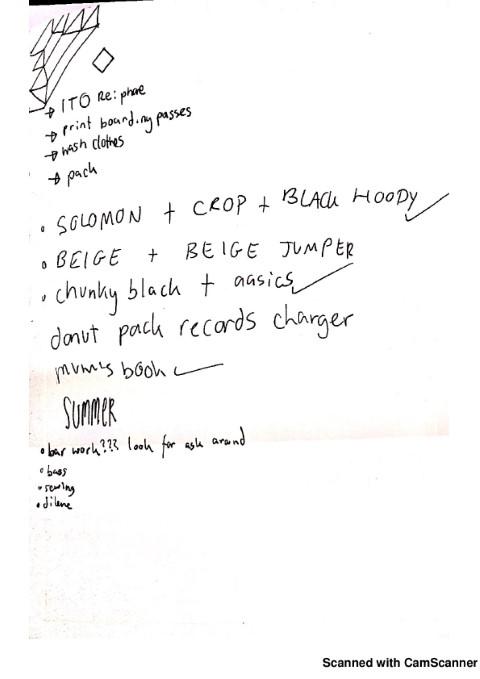 → ITO Re: phone
→ print boarding passes
→ wash clothes
→ pack
• SOLOMON + CROP + BLACK HOODY ✓
• BEIGE + BEIGE JUMPER
• chunky black + aasics ✓
donut pack records charger
mum's book ✓
SUMMER
• bar work??? look for ask around
• bass
• sewing
Scanned with CamScanner